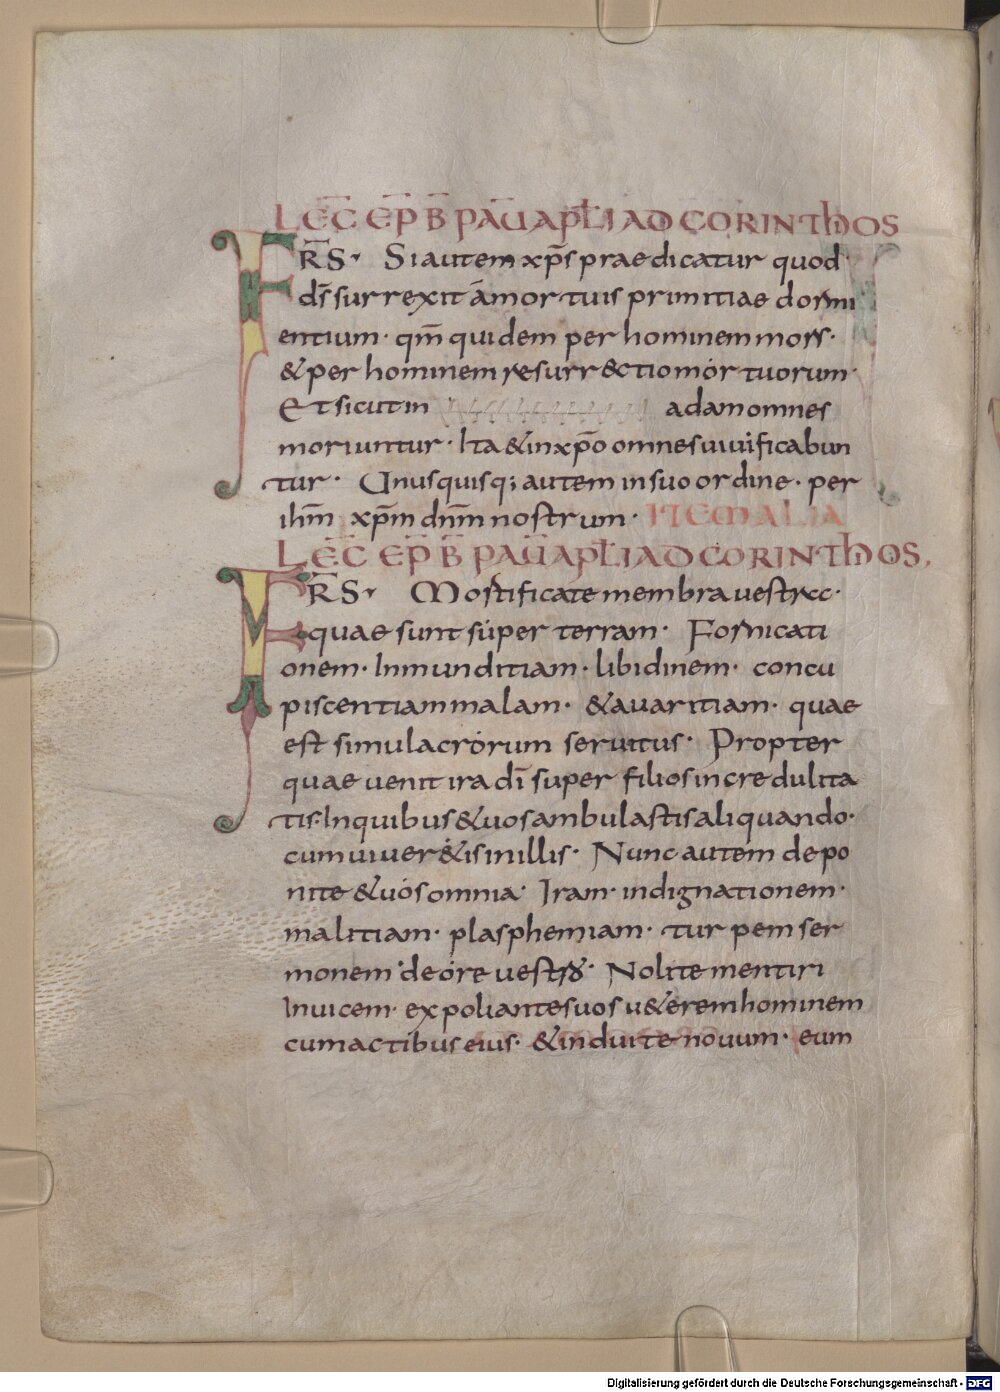 LEC̄ EP̄ B̄ PAŪ APL̄I AD CORINTHOS
FR̄S· Si autem xp̄s praedicatur quod
ds̄ surrexit a mortuis primitiae dormi
entium· qm̄ quidem per hominem mors·
& per hominem resurr&ctio mortuorum·
Et sicut in adam omnes
moriuntur· Ita & in xp̄o omnes uiuificabun
tur· Unusquisq; autem in suo ordine· per
ihm̄ xp̄m dnm̄ nostrum· ITEM ALIA
LEC̄ EP̄ B̄ PAŪ APL̄I AD CORINTHOS.
FR̄S· Mortificate membra uestra·
quae sunt super terram· Fornicati
onem· Inmunditiam· libidinem· concu
piscentiam malam· & auaritiam· quae
est simulacrorum seruitus· Propter
quae uenit ira dī super filios incredulita
tis· In quibus & uos ambulastis aliquando·
cum uiuer&is in illis· Nunc autem depo
nite & uos omnia· Iram· indignationem·
malitiam· plasphemiam· turpem ser
monem de ore uestro· Nolite mentiri
Inuicem· expoliantes uos u&erem hominem
cum actibus eius· & induite nouum· eum
Digitalisierung gefördert durch die Deutsche Forschungsgemeinschaft - DFG